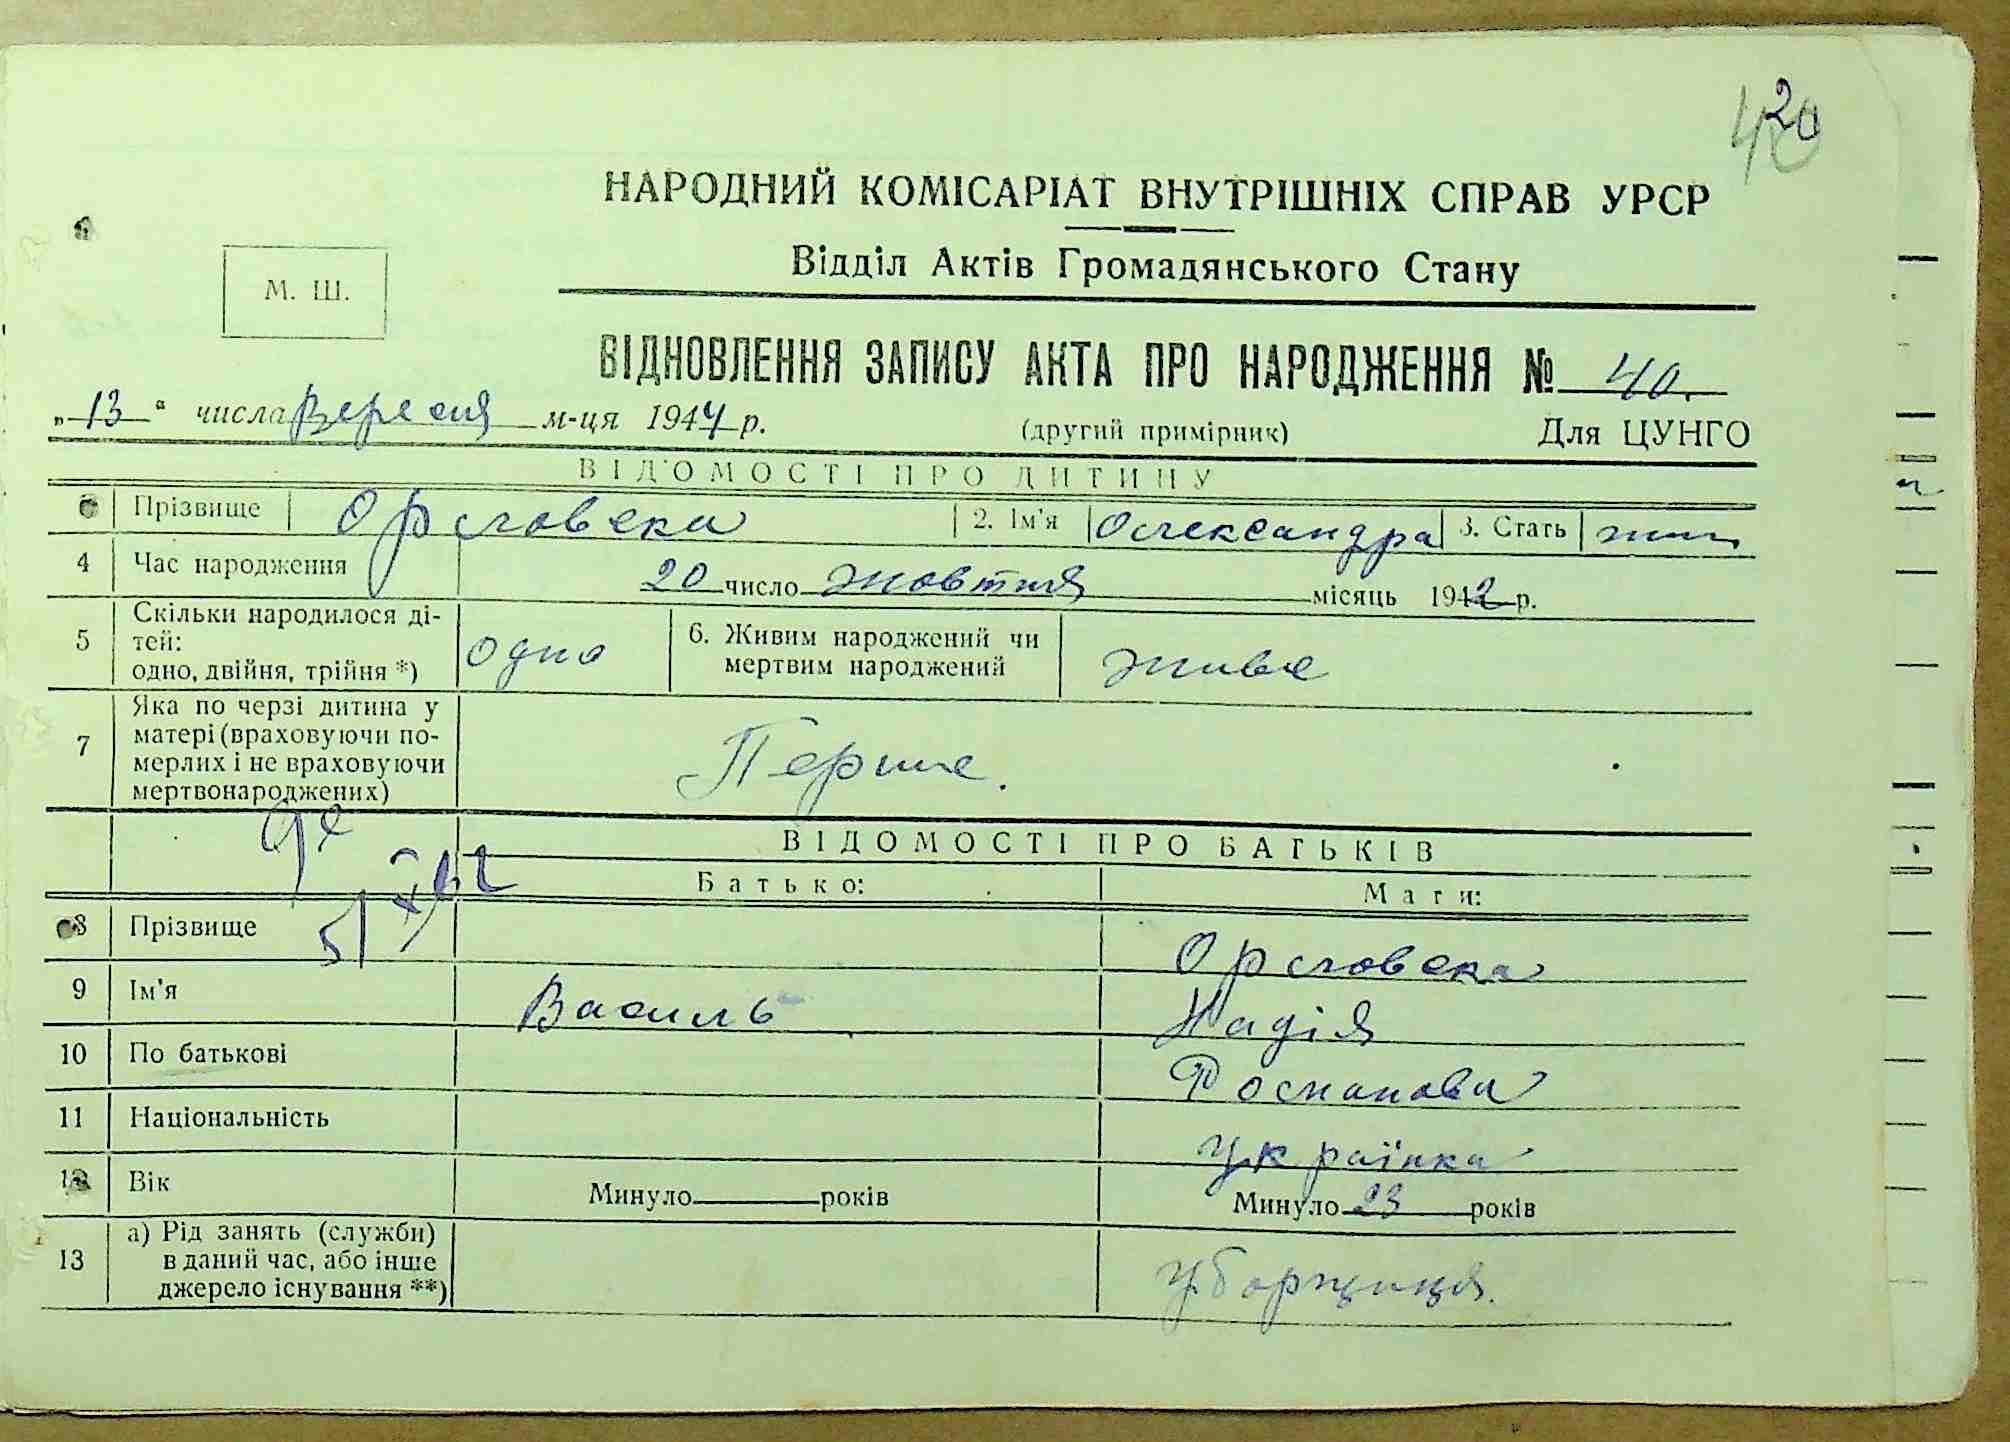 20
40
НАРОДНИЙ КОМІСАРІАТ ВНУТРІШНІХ СПРАВ УРСР
Відділ Актів Громадянського Стану
М. Ш.
ВІДНОВЛЕННЯ ЗАПИСУ АКТА ПРО НАРОДЖЕННЯ № 40.
„13" числа Вересня м-ця 1944 р. (другий примірник) Для ЦУНГО
ВІДОМОСТІ ПРО ДИТИНУ
Прізвище Орловска 2. Ім'я Олександра 3. Стать жін
4 Час народження 20 число жовтня місяць 1942 р.
5 Скільки народилося ді-
тей:
одно, двійня, трійня *) одно 6. Живим народжений чи
мертвим народжений живе
7 Яка по черзі дитина у
матері (враховуючи по-
мерлих і не враховуючи
мертвонароджених) Перше.
ВІДОМОСТІ ПРО БАТЬКІВ
Батько: Мати:
8 Прізвище Орловска
9 Ім'я Василь Надія
10 По батькові Романова
11 Національність українка
12 Вік Минуло років Минуло 23 років
13 а) Рід занять (служби)
в даний час, або інше
джерело існування **) уборщиця.